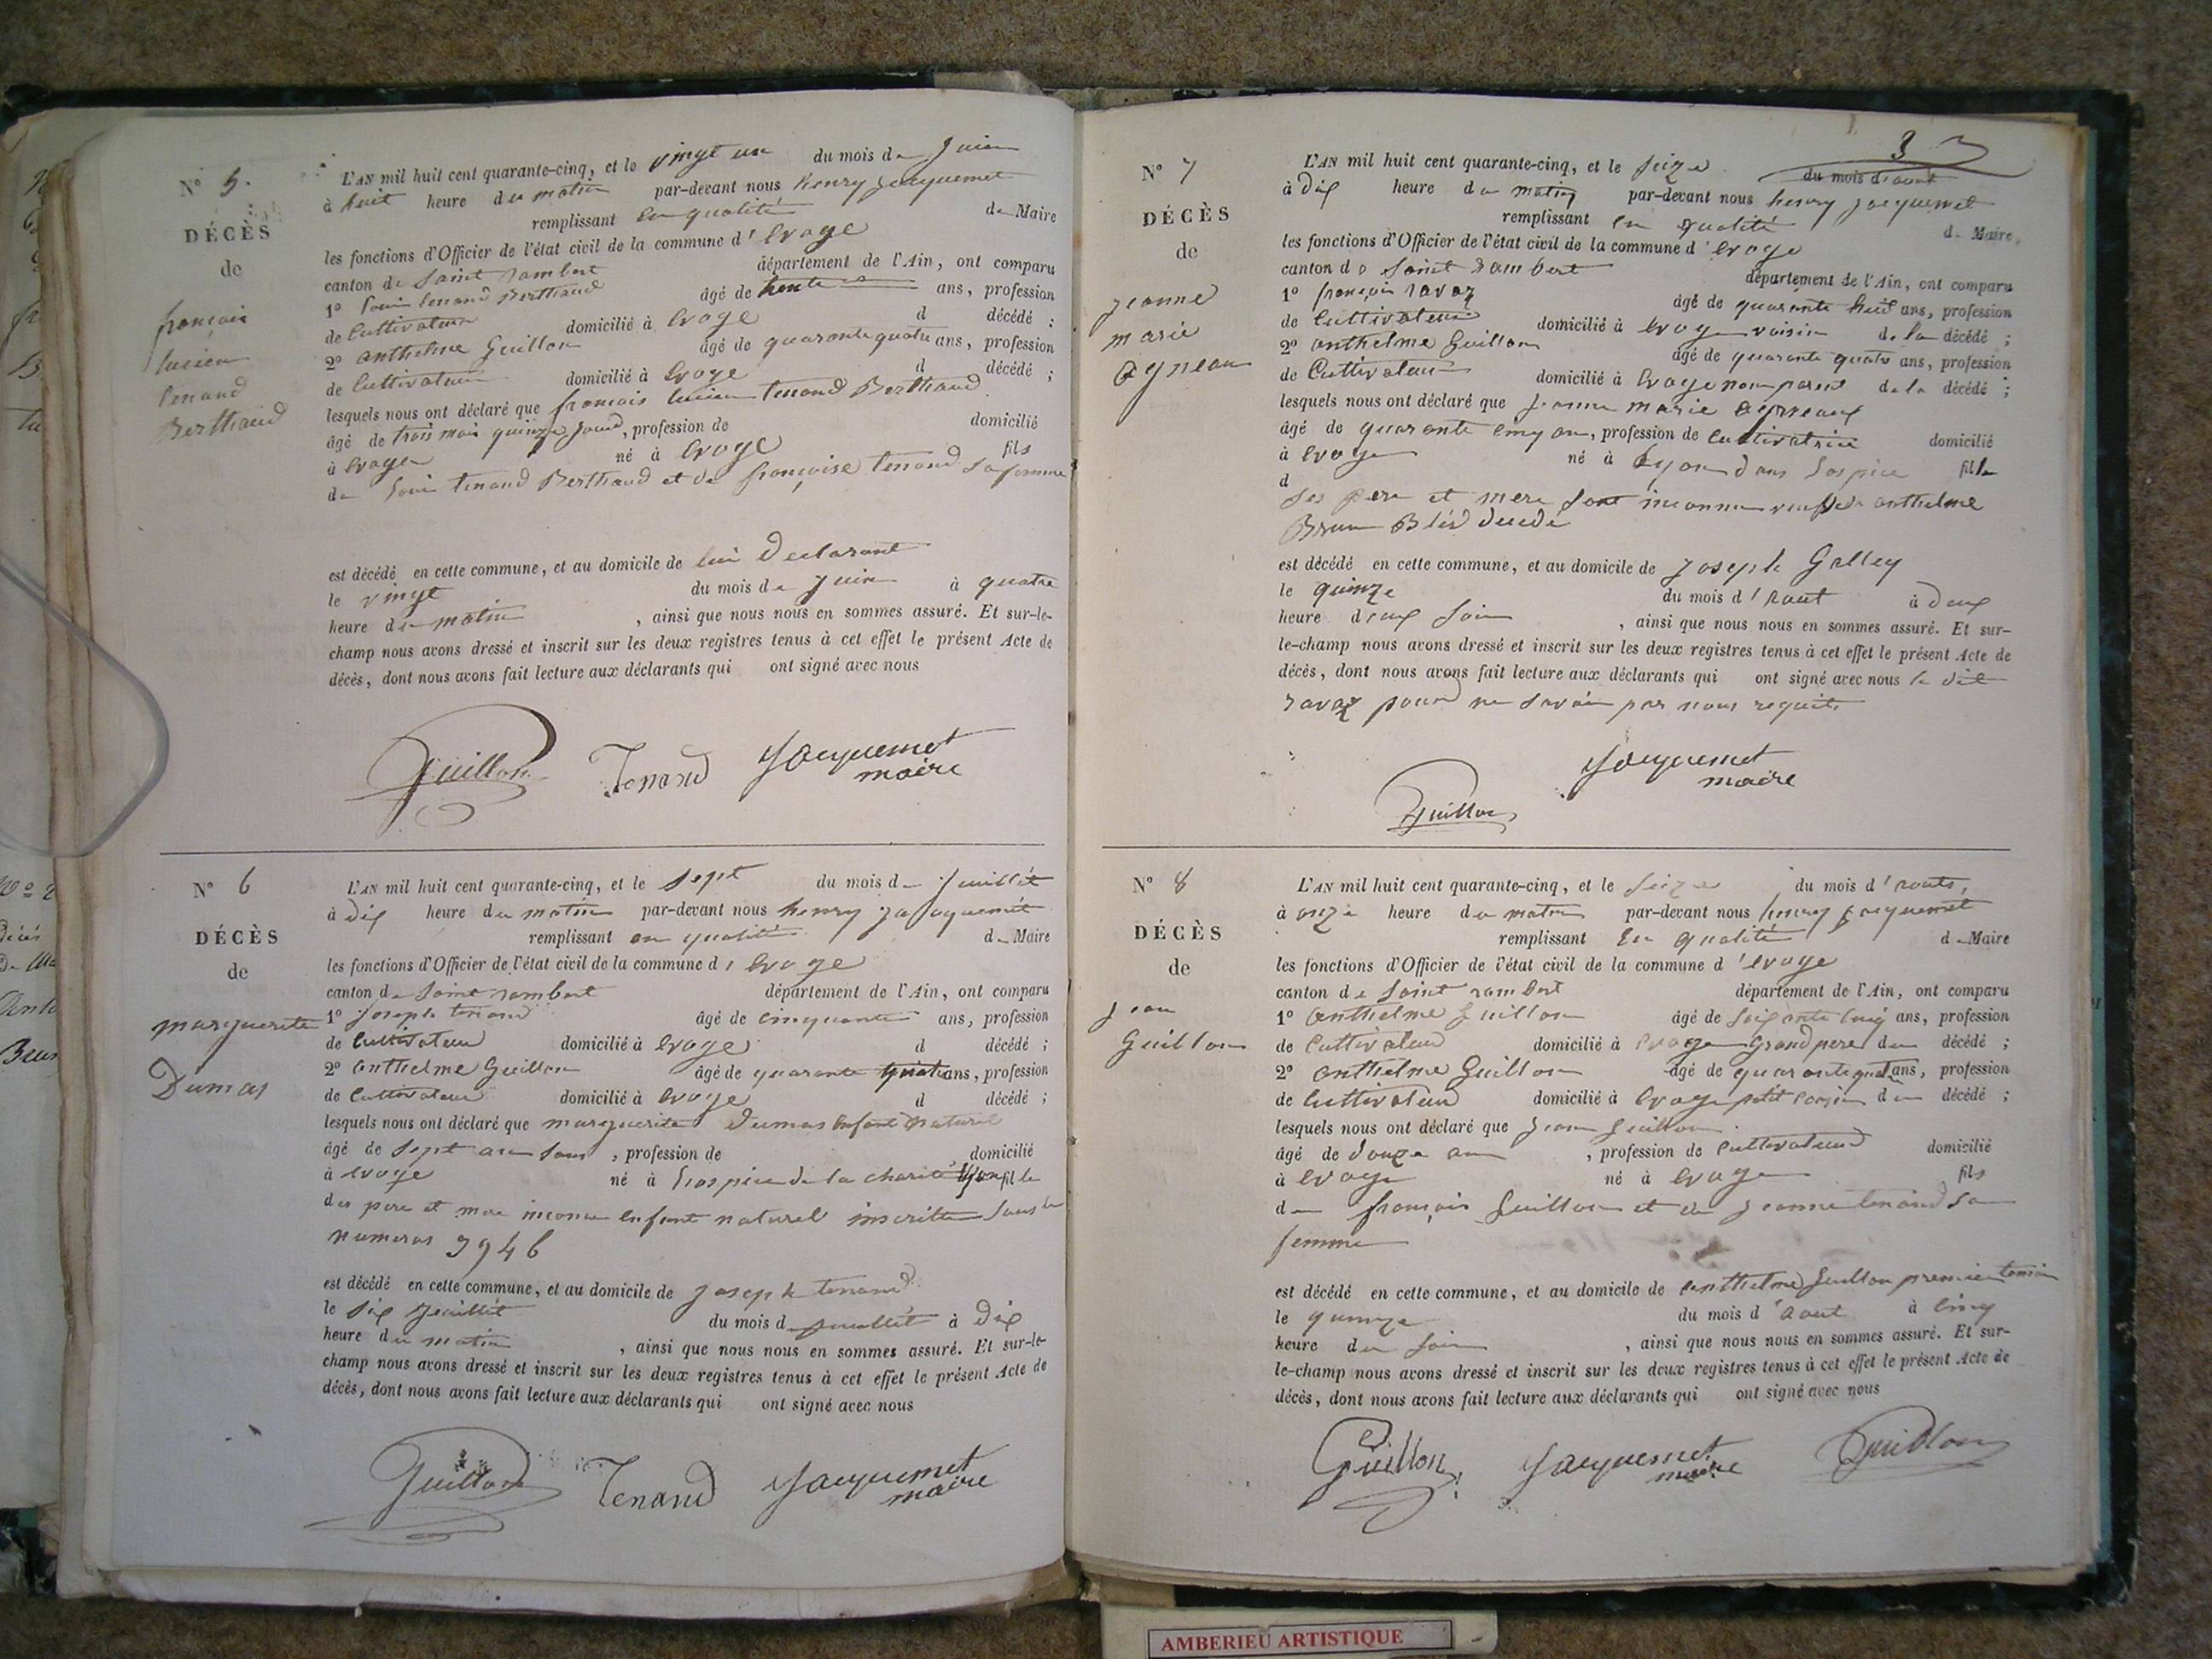 N° 5.
DÉCÈS
de
francois
lucien
tenand
Berthaud
L'AN mil huit cent quarante-cinq, et le vingt un du mois de Juin
à huit heure du matin par-devant nous henry jacquemet
remplissant en qualité de Maire
les fonctions d'Officier de l'état civil de la commune d'evoge
canton de Saint rambert département de l'Ain, ont comparu
1° Louis tenand Berthaud âgé de trente ans, profession
de Cultivateur domicilié à Evoge d décédé ;
2° anthelme Guillon âgé de quarante quatre ans, profession
de Cultivateur domicilié à Evoge d décédé ;
lesquels nous ont déclaré que francois lucien tenand Berthaud
âgé de trois mois quinze jours, profession de domicilié
à evoge né à Evoge fils
de Louis tenand Berthaud et de françoise tenand sa femme
est décédé en cette commune, et au domicile de lui Declarant
le vingt du mois de Juin à quatre
heure du matin , ainsi que nous nous en sommes assuré. Et sur-le-
champ nous avons dressé et inscrit sur les deux registres tenus à cet effet le présent Acte de
décès, dont nous avons fait lecture aux déclarants qui ont signé avec nous
Guillon Tenand Jacquemet
maire
N° 6
DÉCÈS
de
marguerite
Dumas
L'AN mil huit cent quarante-cinq, et le sept du mois de Juillet
à dix heure du matin par-devant nous henry jacquemet
remplissant en qualité de Maire
les fonctions d'Officier de l'état civil de la commune d'evoge
canton de Saint rambert département de l'Ain, ont comparu
1° Joseph tenand âgé de cinquante ans, profession
de Cultivateur domicilié à Evoge d décédé ;
2° anthelme Guillon âgé de quarante quatre ans, profession
de Cultivateur domicilié à evoge d décédé ;
lesquels nous ont déclaré que marguerite Dumas enfant naturel
âgé de sept ans , profession de domicilié
à evoge né à hospice de la charité Lyon fille
des pere et mere inconnu enfant naturel inscritte sous le
numeros 9946
est décédé en cette commune, et au domicile de joseph tenand
le six Jeuillet du mois de Jeuillet à Dix
heure du matin , ainsi que nous nous en sommes assuré. Et sur-le-
champ nous avons dressé et inscrit sur les deux registres tenus à cet effet le présent Acte de
décès, dont nous avons fait lecture aux déclarants qui ont signé avec nous
Guillon Tenand Jacquemet
maire
3
N° 7
DÉCÈS
de
jeanne
marie
agneau
L'AN mil huit cent quarante-cinq, et le seize du mois d'aout
à dix heure du matin par-devant nous henry jacquemet
remplissant en qualité de Maire
les fonctions d'Officier de l'état civil de la commune d'evoge
canton de Saint rambert département de l'Ain, ont comparu
1° françois ravaz âgé de quarante huit ans, profession
de Cultivateur domicilié à evoge voisin de la décédé ;
2° anthelme Guillon âgé de quarante quatre ans, profession
de Cultivateur domicilié à Evoge non parent de la décédé ;
lesquels nous ont déclaré que jeanne marie agneau
âgé de quarante cinq ans, profession de cultivatrice domicilié
à evoge né à Lyon dans lospice fille
d
ses pere et mere sont inconnu veuve de anthelme
Brun Blés décédé
est décédé en cette commune, et au domicile de joseph Galley
le quinze du mois d'aout à deux
heure deux soir , ainsi que nous nous en sommes assuré. Et sur-
le-champ nous avons dressé et inscrit sur les deux registres tenus à cet effet le présent Acte de
décès, dont nous avons fait lecture aux déclarants qui ont signé avec nous le dit
ravaz pour ne savoir par nous requits
Jacquemet
maire
Guillon
N° 8
DÉCÈS
de
jean
Guillon
L'AN mil huit cent quarante-cinq, et le Seize du mois d'aouts,
à onze heure du matin par-devant nous henry jacquemet
remplissant en qualité de Maire
les fonctions d'Officier de l'état civil de la commune d'evoge
canton de Saint rambert département de l'Ain, ont comparu
1° anthelme Guillon âgé de soixante cinq ans, profession
de Cultivateur domicilié à evoge grand pere du décédé ;
2° anthelme Guillon âgé de quarante quatre ans, profession
de Cultivateur domicilié à Evoge petit cousin du décédé ;
lesquels nous ont déclaré que jean Guillon
âgé de douze ans , profession de cultivateur domicilié
à evoge né à evoge fils
de françois Guillon et de jeanne tenand sa
femme
est décédé en cette commune, et au domicile de anthelme Guillon premier temoin
le quinze du mois d'aout à cinq
heure du soir , ainsi que nous nous en sommes assuré. Et sur-
le-champ nous avons dressé et inscrit sur les deux registres tenus à cet effet le présent Acte de
décès, dont nous avons fait lecture aux déclarants qui ont signé avec nous
Guillon Jacquemet Guillon
maire
AMBERIEU ARTISTIQUE